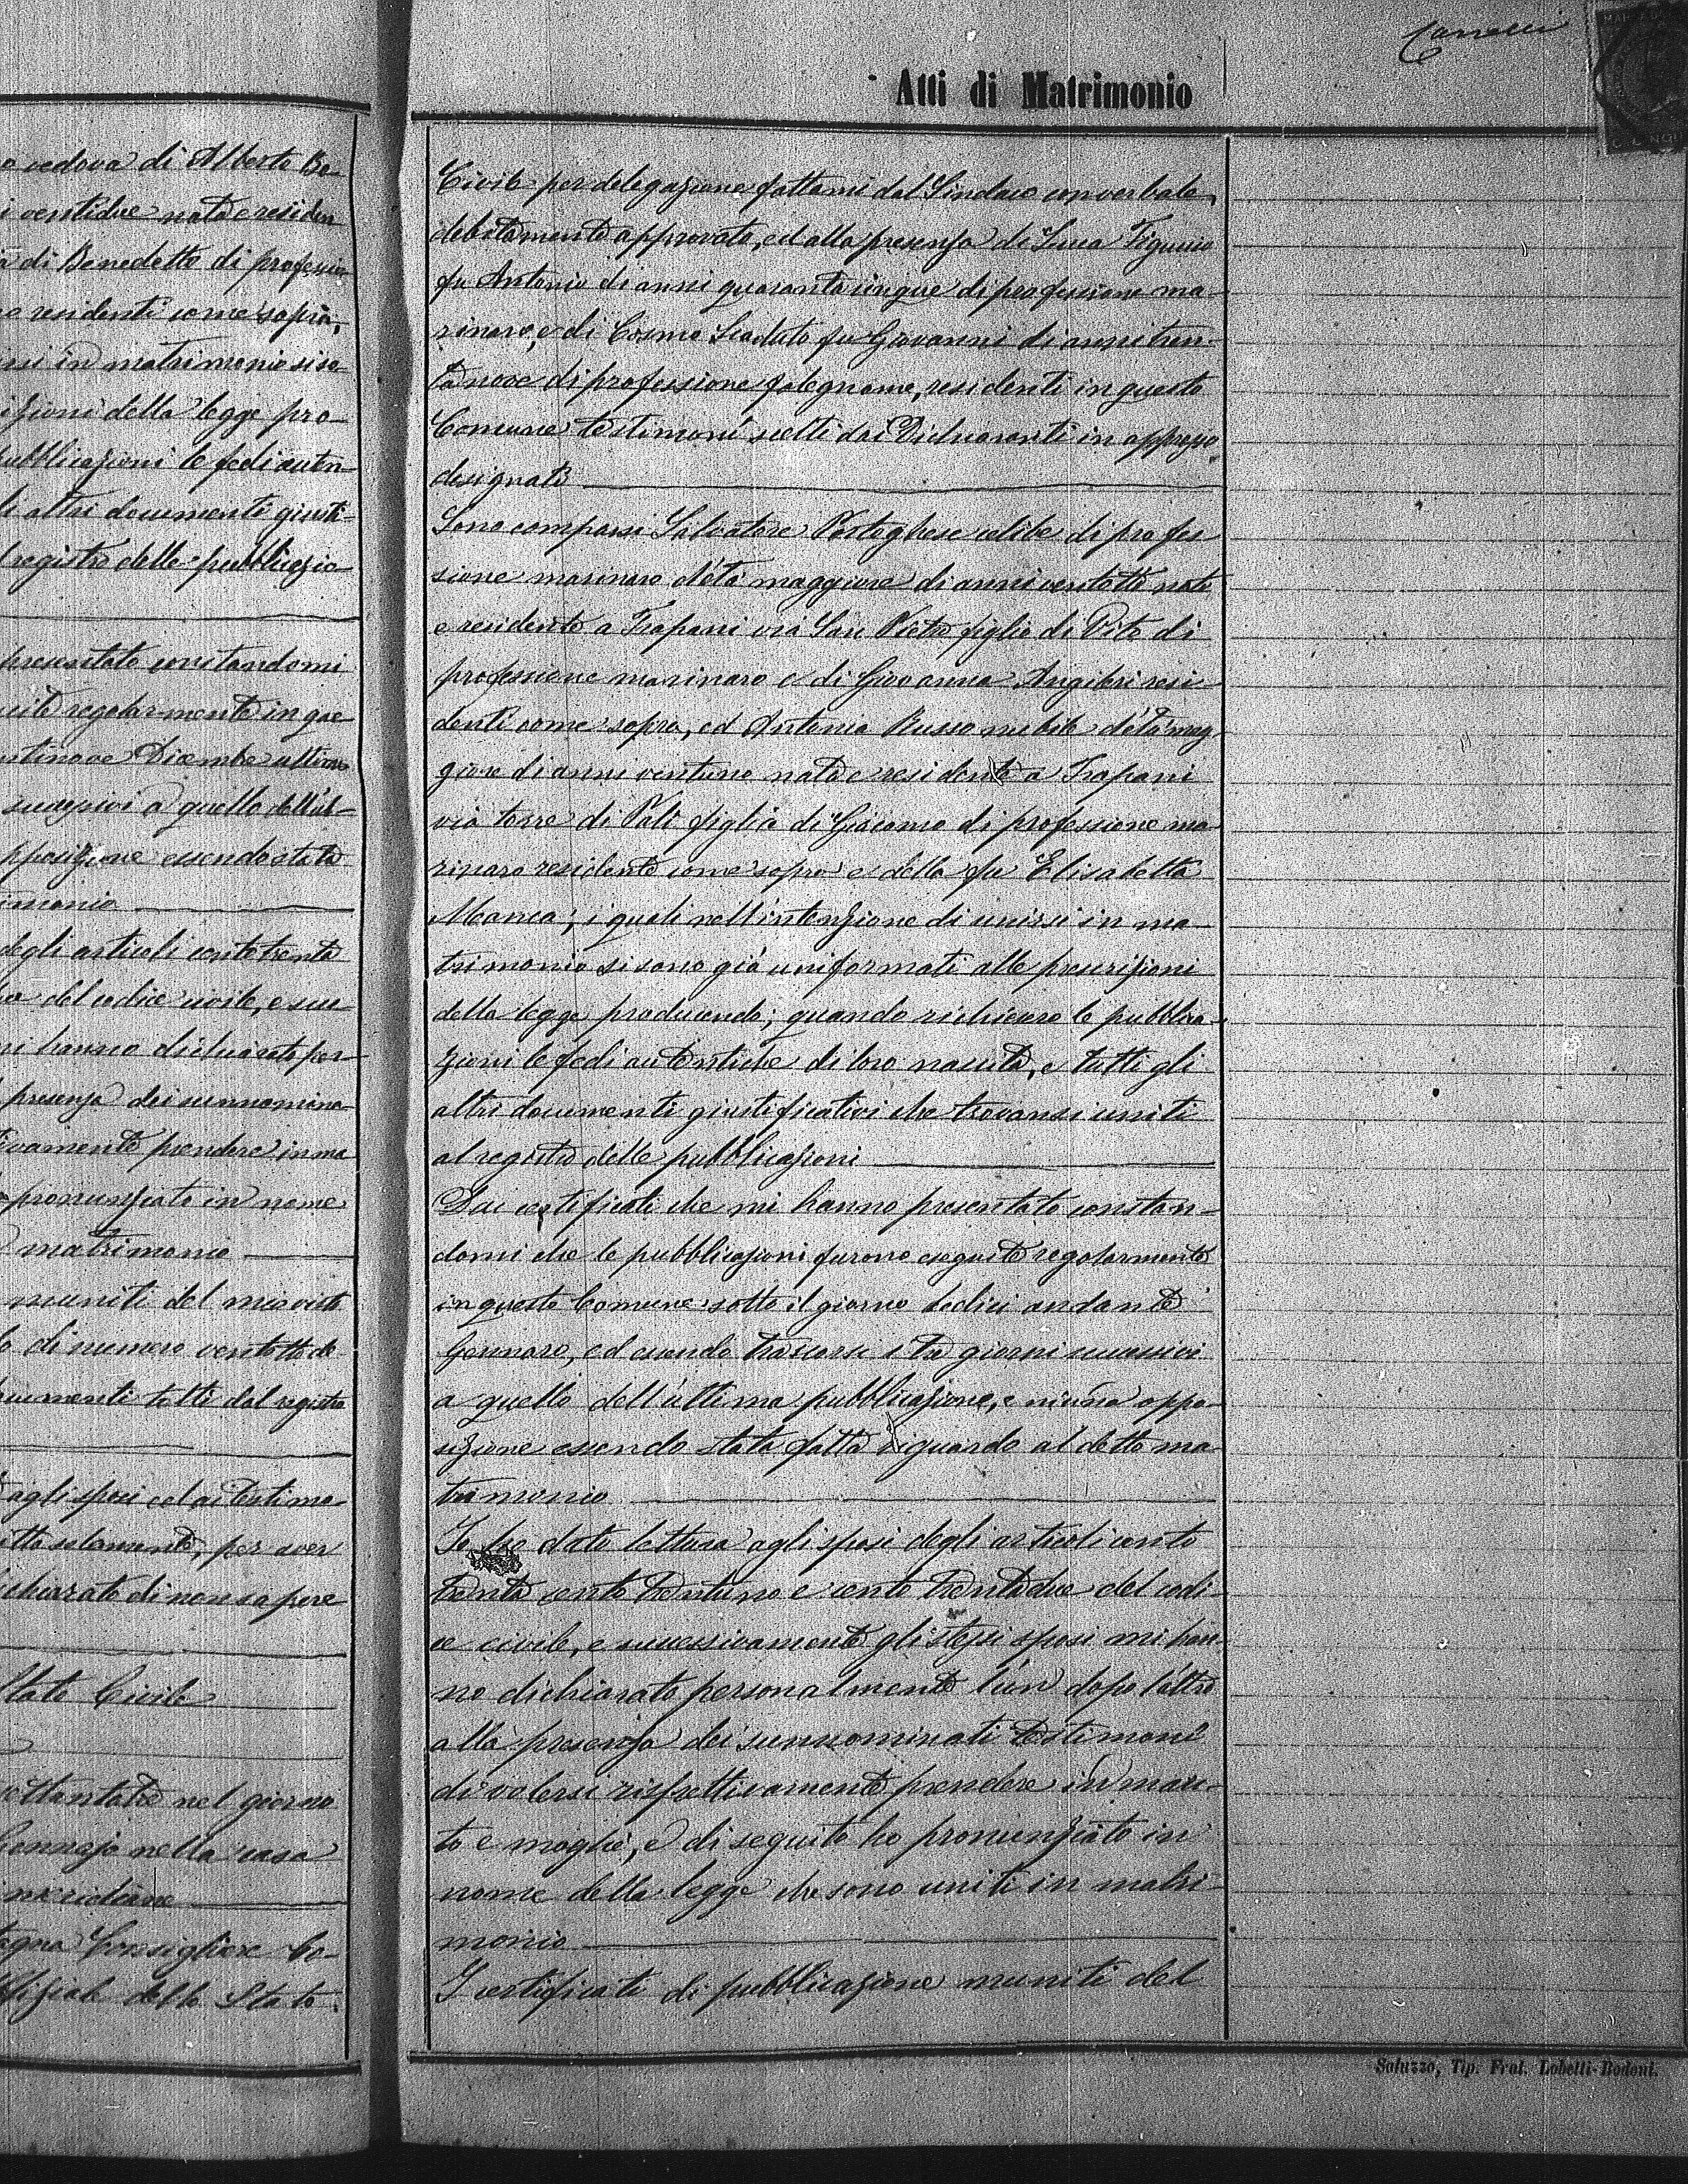 Atti di Matrimonio
o vedova di Alberto Be-
i ventidue nata e residen
a di Benedetto di professio
e residenti come sopra,
rsi in matrimonio si so-
izioni della legge pro-
pubblicazioni le fedi auten-
li altri documenti giusti-
registro delle pubblicazio
presentato constandomi
uite regolarmente in que
ntinove Dicembre ultimo
successivi a quello dell'ul-
pposizione essendo stata
imonio
degli articoli cento trenta
del codice civile, e suc-
ri hanno dichiarato per-
presenza dei sunnomina-
ivamente prendere in ma
pronunziato in nome
matrimonio
muniti del mio visto
di numero ventotto do
cumenti tutti dal registro
agli sposi ed ai testimo-
itto solamente, per aver
chiarato di non sapere
Stato Civile
ottantatre nel giorno
Gennajo nella casa
meridiane
Consigliere Co-
ffiziale dello Stato
Civile per delegazione fattami dal Sindaco con verbale
debitamente approvato, ed alla presenza di
fu Antonio di anni quarantacinque di professione ma-
rinaro, e di Cosmo Scaduto fu Giovanni di anni tren-
tanove di professione falegname, residenti in questo
Comune testimoni scelti dai Dichiaranti in appresso
designati
Sono comparsi Salvatore Portoghese celibe di profes
sione marinaro d'età maggiore di anni ventotto nato
e residente a Trapani via San Pietro figlio di Vito di
professione marinaro e di Giovanna Angileri resi-
denti come sopra, ed Antonia Russo nubile d'età mag
giore di anni ventuno nata e residente a Trapani
via torre di Pali figlia di Giacomo di professione ma-
rinaro residente come sopra e della fu Elisabetta
Manca; i quali nell'intenzione di unirsi in ma-
trimonio si sono già uniformati alle prescrizioni
della legge producendo; quando richiesero le pubblica-
zioni le fedi autentiche di loro nascita, e tutti gli
altri documenti giustificativi che trovansi uniti
al registro delle pubblicazioni
Dai certificati che mi hanno presentato constan-
domi che le pubblicazioni furono eseguite regolarmente
in questo Comune sotto il giorno sedici andante
Gennaro, ed essendo trascorsi i tre giorni successivi
a quello dell'ultima pubblicazione, e niuna oppo-
sizione essendo stata fatta riguardo al detto ma-
trimonio
Io ho dato lettura agli sposi degli articoli cento
trenta cento trentuno e cento trentadue del codi-
ce civile, e successivamente gli stessi sposi mi han-
no dichiarato personalmente l'un dopo l'altro
alla presenza dei sunnominati testimoni
di volersi rispettivamente prendere in mari-
to e moglie, e di seguito ho pronunziato in
nome della legge che sono uniti in matri-
monio
I certificati di pubblicazione muniti del
Saluzzo, Tip. Frat. Lobetti-Bodoni.